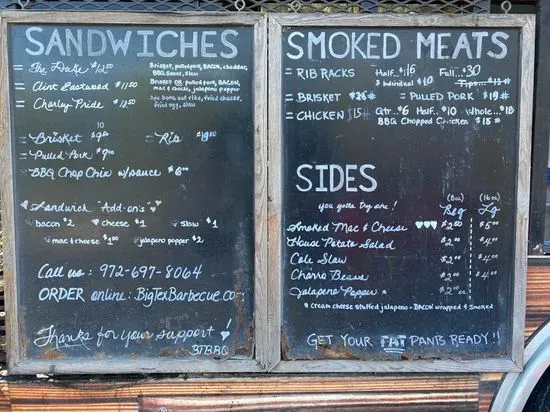 SANDWICHES
= The Duke $12.50 Brisket, pulled pork, BACON, cheddar, BBQ sauce, slaw
= Clint Eastwood $11.50 Brisket OR pulled pork, BACON, mac & cheese, jalapeno popper
= Charley Pride $12.50 bone out ribs, fried cheese, fried egg, slaw
= Brisket
= Rib
= Pulled Pork $9.00
= BBQ Chop Chix w/sauce $8.00
Sandwich Add-on's
bacon $2 cheese $1 slaw $1
mac & cheese $1.00 jalapeno popper $2
Call us: 972-697-8064
ORDER online: BigTexBarbecue.co
Thanks for your support!
BTBBQ
SMOKED MEATS
= RIB RACKS Half... $16 Full...30
3 Individual $10 Tips...$13#
= BRISKET $26# = PULLED PORK $19#
= CHICKEN $15# Qtr. $6 Half. $10 Whole. $18
BBQ Chopped Chicken $15#
SIDES
you gotta try one!
(8oz) Reg (16oz) Lg
Smoked Mac & Cheese $2.50 $5.00
House Potato Salad $2.00 $4.00
Cole Slaw $2.00 $4.00
Charro Beans $2.00 $4.00
Jalapeno Popper * $2.00 ea
* cream cheese stuffed jalapeno - BACON wrapped & smoked
GET YOUR FAT PANTS READY!!